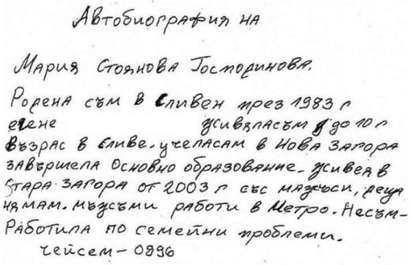 Автобиография на
Мария Стоянова Господинова.
Родена съм в Сливен през 1983 г
живяласъм до 10 г
възрас в Сливе. учеласам в Нова Загора
завършела основно образование. живея в
Стара Загора от 2003 г със мажъси, деца
нямам. мъжъми работи в Метро. Несъм-
Работила по семейни проблеми.
чейсем - 0896